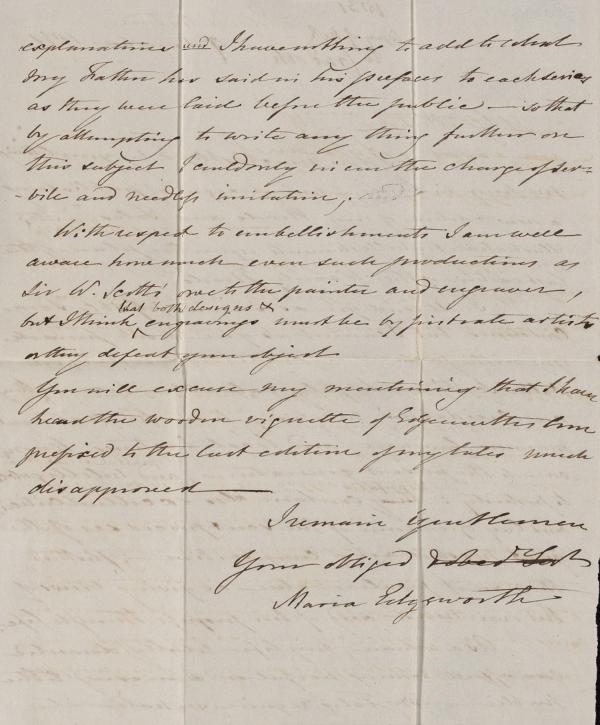 explanations and I have nothing to add to what
my Father has said in his prefaces to each series
as they were laid before the public — so that
by attempting to write any thing further on
this subject I could only incur the charge of ser-
-vile and needless imitation,
With respect to embellishments I am well
aware how much even such productions as
Sir W. Scotts owe to the painter and engraver,
that both designs &
but I think ^ engravings must be by first rate artists
or they defeat your object
You will excuse my mentioning that I have
heard the wooden vignette of Edgeworths town
prefixed to the last edition of my tales much
disapproved —
I remain Gentlemen
Your obliged & obedt Servt
Maria Edgeworth